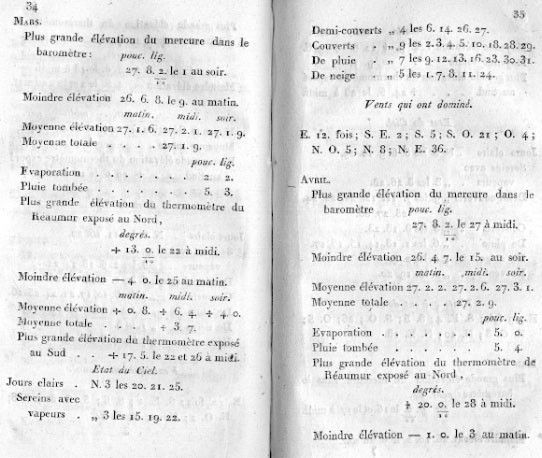 34
MARS.
Plus grande élévation du mercure dans le
baromètre : pouc. lig.
27. 8. 2. le 1 au soir.
10
Moindre élévation 26. 6. 8. le 9. au matin.
matin. midi. soir.
Moyenne élévation 27. 1. 6. 27. 2. 1. 27. 1. 9.
Moyenne totale . . . 27. 1. 9.
pouc. lig.
Evaporation . . . . . . 2. 2.
Pluie tombée . . . . . . 5. 3.
Plus grande élévation du thermomètre du
Réaumur exposé au Nord,
degrés.
+ 13. 0. le 22 à midi.
10
Moindre élévation — 4. 0. le 25 au matin.
matin. midi. soir.
Moyenne élévation + 0. 8. + 6. 4. + 4. 0.
Moyenne totale . . . + 3. 7.
Plus grande élévation du thermomètre exposé
au Sud . . + 17. 5. le 22 et 26 à midi.
Etat du Ciel.
Jours clairs . N. 3 les 20. 21. 25.
Sereins avec
vapeurs . „ 3 les 15. 19. 22.
35
Demi-couverts „ 4 les 6. 14. 26. 27.
Couverts . „ 9 les 2. 3. 4. 5. 10. 18. 28. 29.
De pluie . „ 7 les 9. 12. 13. 16. 23. 30. 31.
De neige . „ 5 les 1. 7. 8. 11. 24.
Vents qui ont dominé.
E. 12. fois ; S. E. 2 ; S. 5 ; S. O. 21 ; O. 4 ;
N. O. 5 ; N. 8 ; N. E. 36.
AVRIL.
Plus grande élévation du mercure dans le
baromètre pouc. lig.
27. 8. 2. le 27 à midi.
10
Moindre élévation 26. 4. 7. le 15. au soir.
matin. midi. soir.
Moyenne élévation 27. 2. 2. 27. 2. 6. 27. 3. 1.
Moyenne totale . . . 27. 2. 9.
pouc. lig.
Evaporation . . . . . . 5. 0.
Pluie tombée . . . . . 5. 4.
Plus grande élévation du thermomètre de
Réaumur exposé au Nord,
degrés.
+ 20. 0. le 28 à midi.
10
Moindre élévation — 1. 0. le 3 au matin.